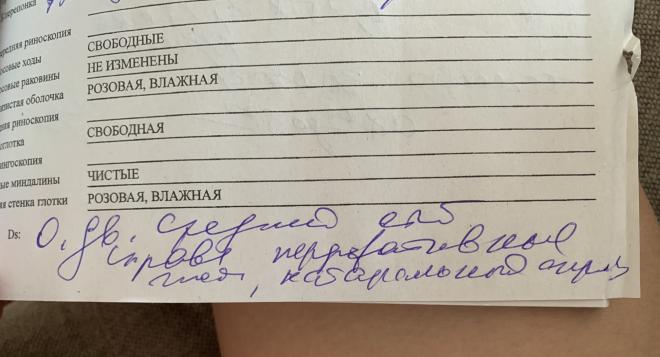 ередняя риноскопия
совые ходы СВОБОДНЫЕ
совые раковины НЕ ИЗМЕНЕНЫ
истая оболочка РОЗОВАЯ, ВЛАЖНАЯ
няя риноскопия
оглотка СВОБОДНАЯ
нгоскопия
ые миндалины ЧИСТЫЕ
я стенка глотки РОЗОВАЯ, ВЛАЖНАЯ
Ds: О. дв. средний отит
справа перфоративный
катаральный